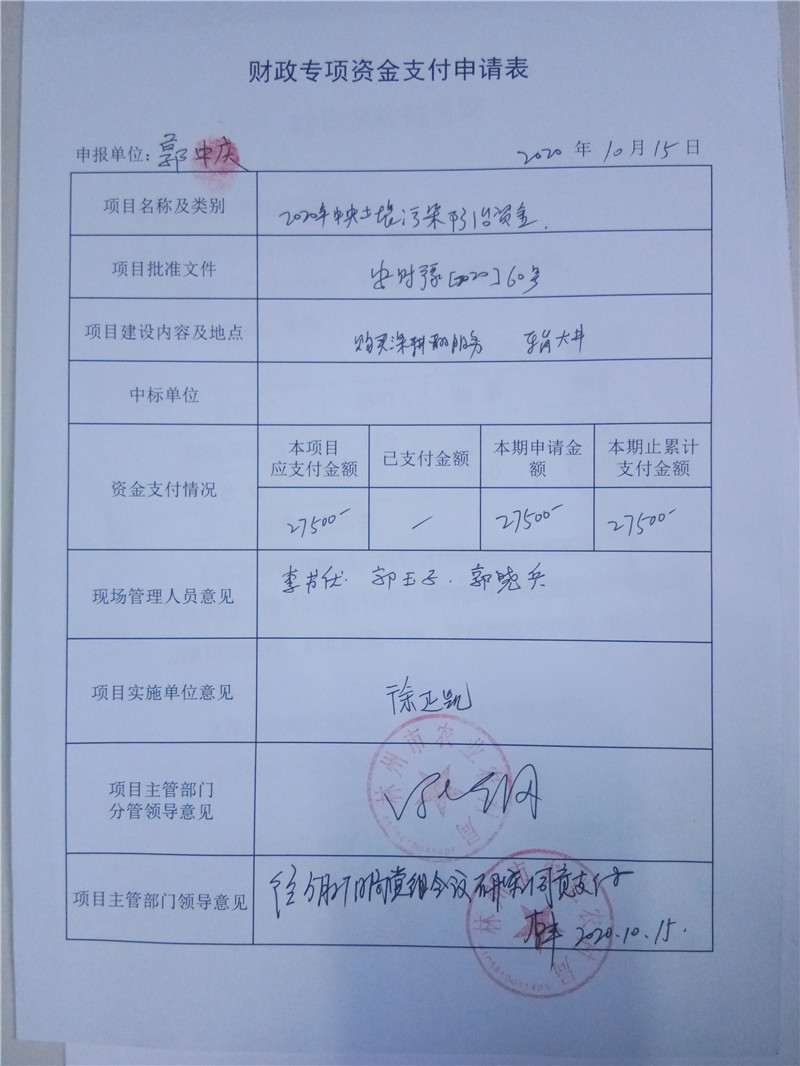 财政专项资金支付申请表
申报单位：郭中庆 2020年10月15日
项目名称及类别 2020年中央土壤污染防治资金.
项目批准文件 安财预[2020]60号
项目建设内容及地点 购买深耕服务 东岗大井
中标单位
资金支付情况
本项目应支付金额 已支付金额 本期申请金额 本期止累计支付金额
27500- — 27500- 27500-
现场管理人员意见 李书伏. 郭玉子. 郭晓兵
项目实施单位意见 徐正凯
项目主管部门
分管领导意见
林州市农业农村局
项目主管部门领导意见 经5月27日局党组会议研究同意支付
2020.10.15.
林州市农业农村局